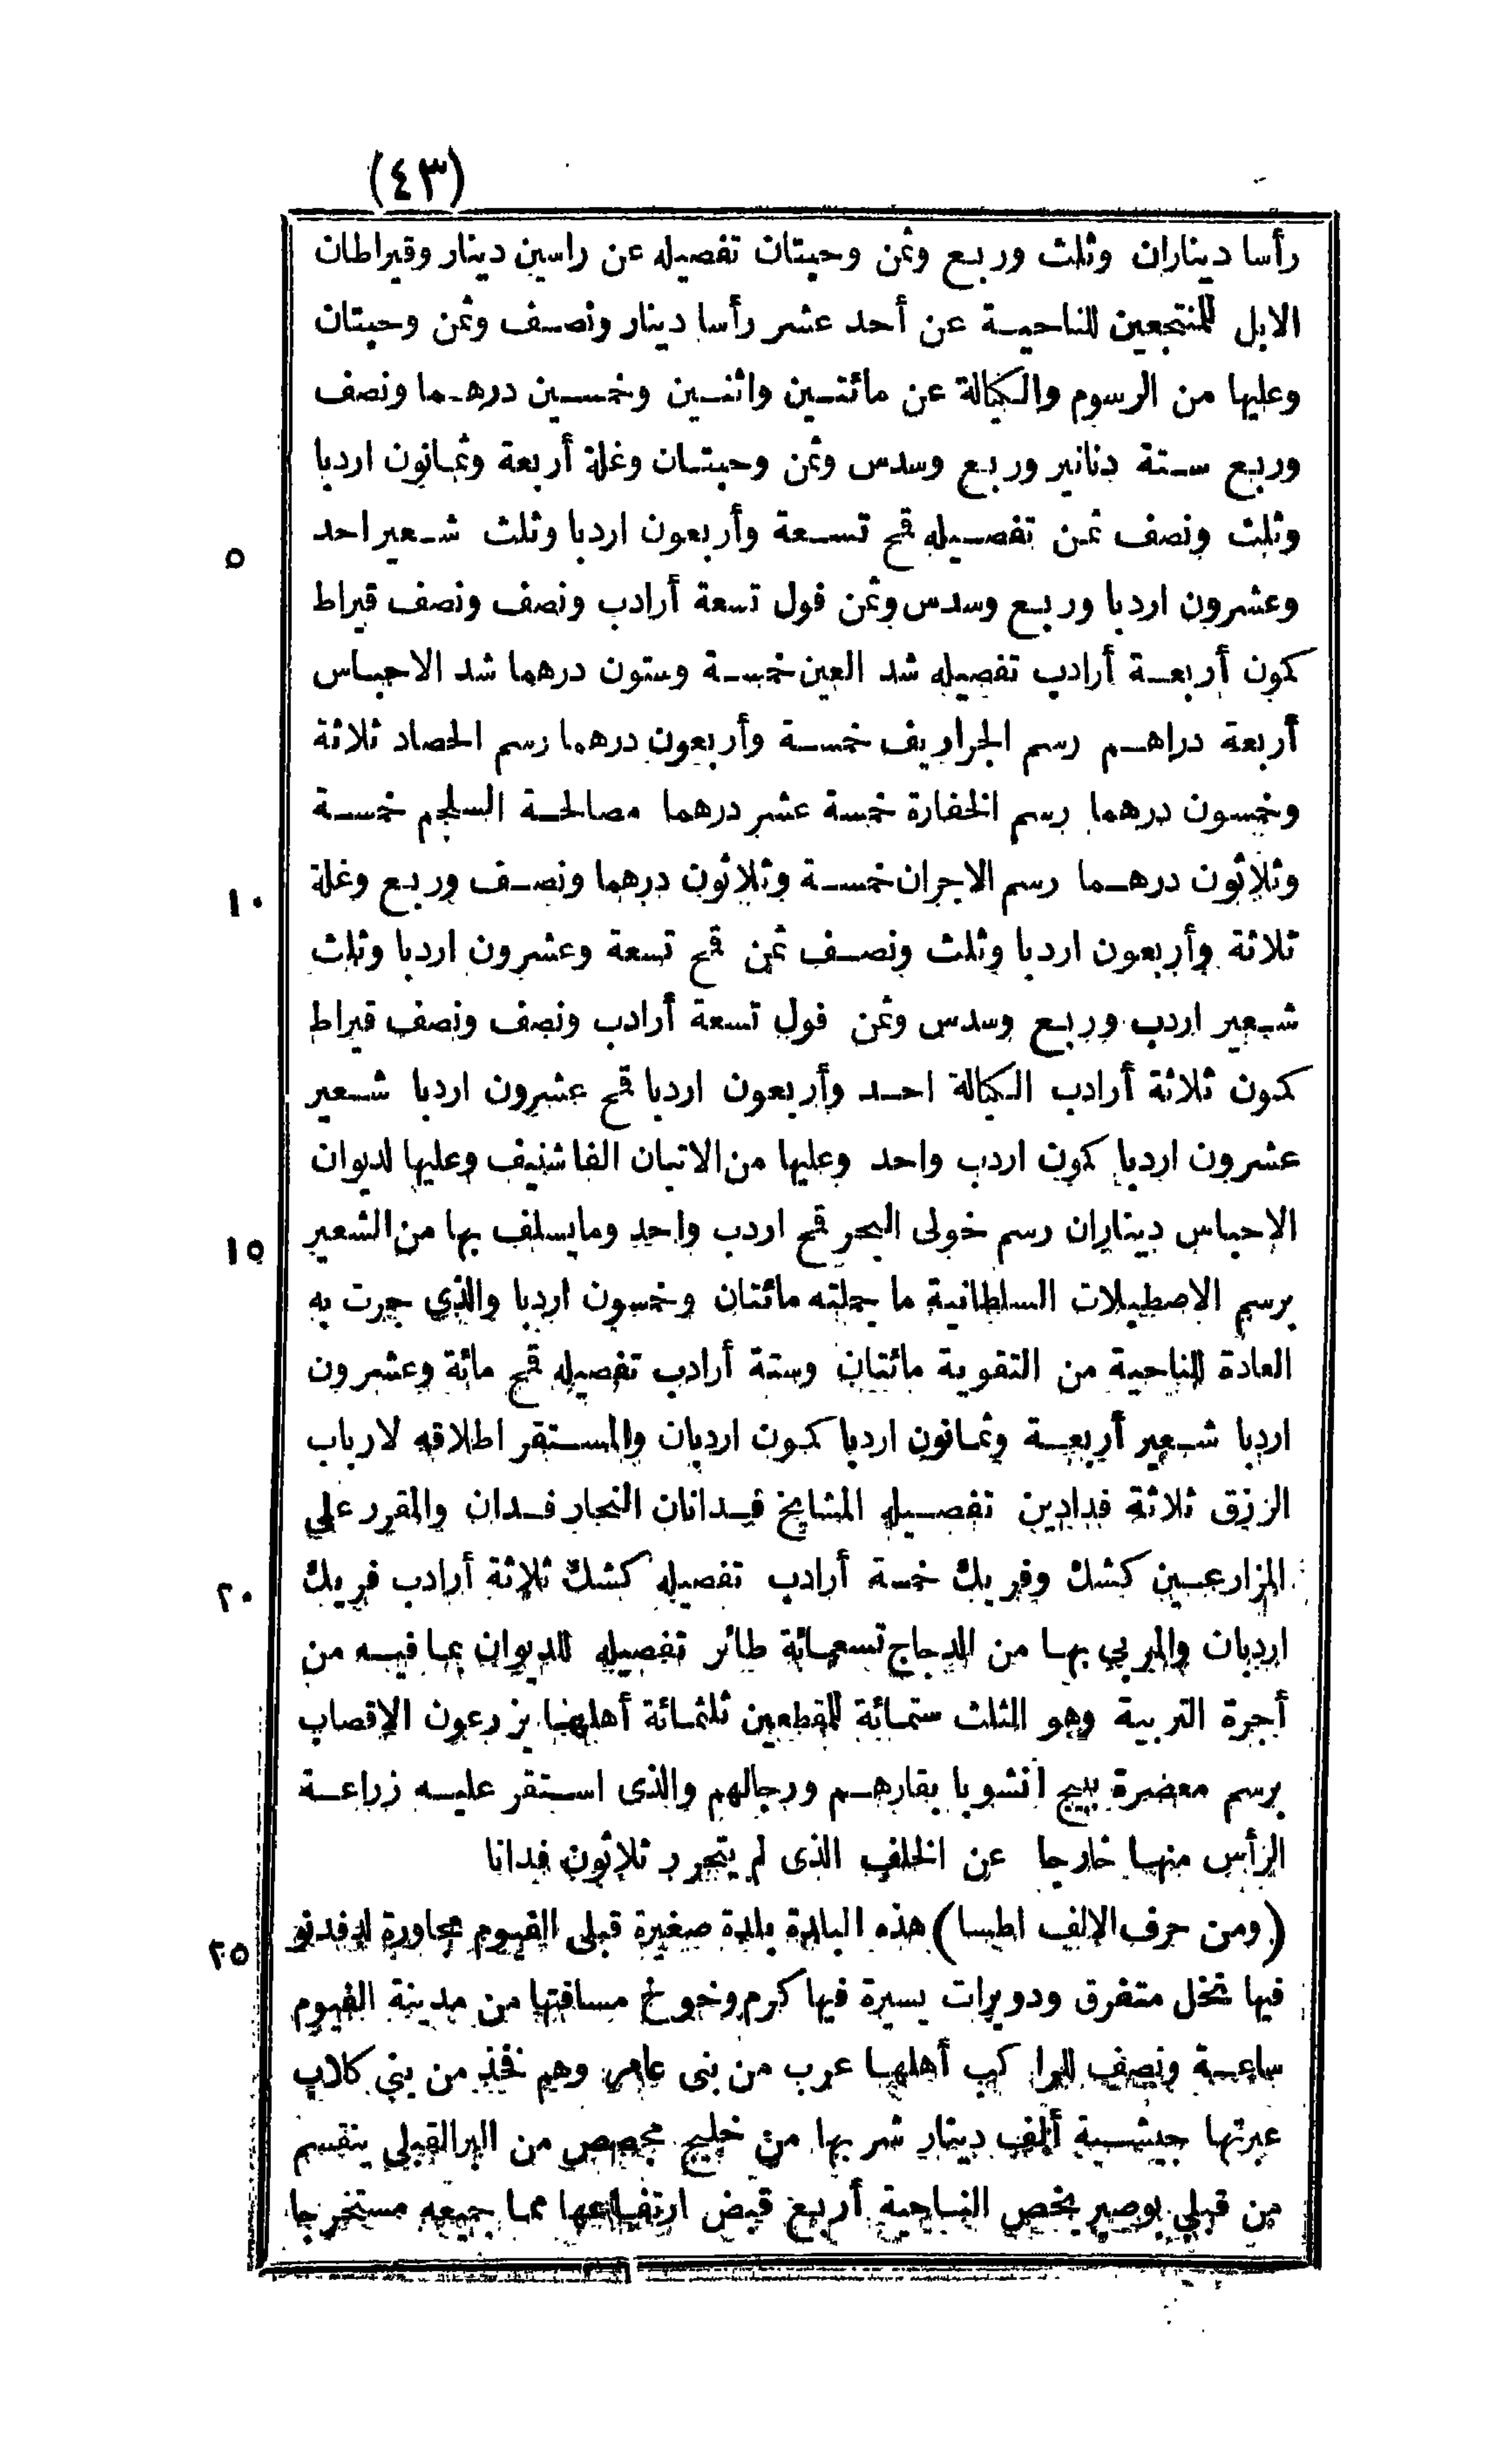 (٤٣)
رأسا ديناران وثلث وربع وثمن وحبتان تفصيله عن راسين دينار وقيراطان
الابل للمنتجعين للناحية عن أحد عشر رأسا دينار ونصف وثمن وحبتان
وعليها من الرسوم والكيالة عن مائتين واثنين وخمسين درهما ونصف
وربع ستة دنانير وربع وسدس وثمن وحبتان وغلة أربعة وثمانون اردبا
وثلث ونصف ثمن تفصيله قمح تسعة وأربعون اردبا وثلث شعير احد
٥
وعشرون اردبا وربع وسدس وثمن فول تسعة أرادب ونصف ونصف قيراط
كمون أربعة أرادب تفصيله شد العين خمسة وستون درهما شد الاحباس
أربعة دراهم رسم الجراريف خمسة وأربعون درهما رسم الحصاد ثلاثة
وخمسون درهما رسم الخفارة خمسة عشر درهما مصالحة السلجم خمسة
وثلاثون درهما رسم الاجران خمسة وثلاثون درهما ونصف وربع وغلة
١٠
ثلاثة وأربعون اردبا وثلث ونصف ثمن قمح تسعة وعشرون اردبا وثلث
شعير اردب وربع وسدس وثمن فول تسعة أرادب ونصف ونصف قيراط
كمون ثلاثة أرادب الكيالة احد وأربعون اردبا قمح عشرون اردبا شعير
عشرون اردبا كمون اردب واحد وعليها من الاتبان الفا شنيف وعليها لديوان
الاحباس ديناران رسم خولى البحر قمح اردب واحد وما يسلف بها من الشعير
١٥
برسم الاصطبلات السلطانية ما جملته مائتان وخمسون اردبا والذي جرت به
العادة للناحية من التقوية مائتان وستة أرادب تفصيله قمح مائة وعشرون
اردبا شعير أربعة وثمانون اردبا كمون اردبان والمستقر اطلاقه لارباب
الرزق ثلاثة فدادين تفصيله المشايخ فدانان النجار فدان والمقرر على
المزارعين كشك وفريك خمسة أرادب تفصيله كشك ثلاثة أرادب فريك
٢٠
اردبان والمربي بها من الدجاج تسعمائة طائر تفصيله للديوان بما فيه من
أجرة التربية وهو الثلث ستمائة للمقطعين ثلثمائة أهلها يزرعون الاقصاب
برسم معصرة ببيج انشو بابقارهم ورجالهم والذى استقر عليه زراعة
الرأس منها خارجا عن الخلف الذى لم يتحرر ثلاثون فدانا
(ومن حرف الالف اطسا) هذه البلدة بلدة صغيرة قبلى الفيوم مجاورة لدفدنو
٢٥
فيها نخل متفرق ودويرات يسيرة فيها كرم وخوخ مسافتها من مدينة الفيوم
ساعة ونصف للراكب أهلها عرب من بنى عامر وهم فخذ من بني كلاب
عبرتها جيشية ألف دينار شربها من خليج مخصص من البر القبلي ينقسم
من قبلي بوصير يخص الناحية أربع قبض ارتفاعها مما جميعه مستخرجا